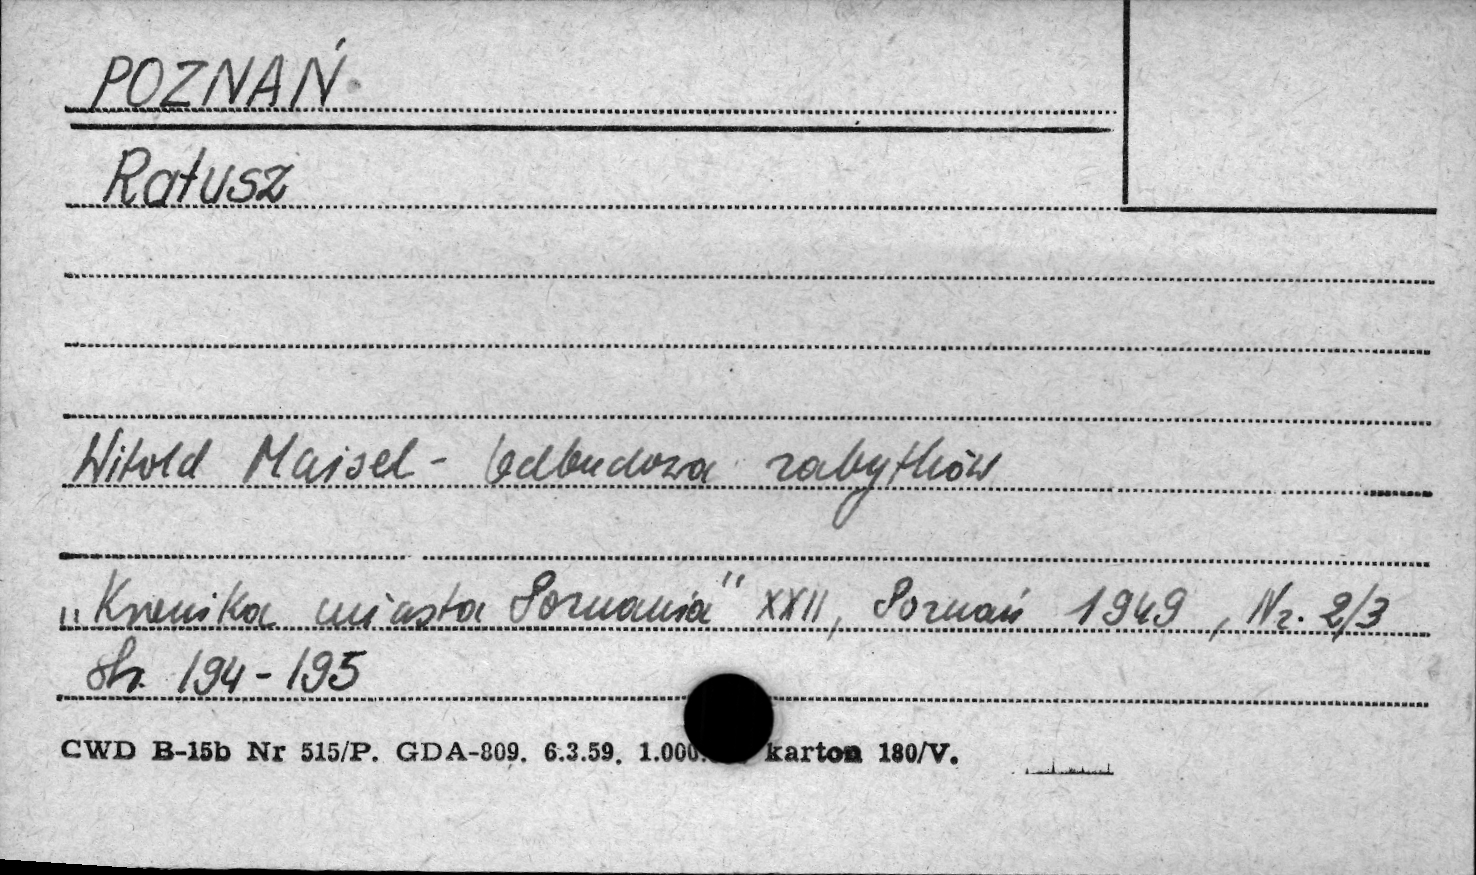 POZNAŃ
Ratusz
Witold Maisel - Odbudowa zabytków
„Kronika miasta Poznania" XXII, Poznań 1949, Nr. 2/3
str. 194-195
CWD B-15b Nr 515/P. GDA-809. 6.3.59. 1.000. karton 180/V.